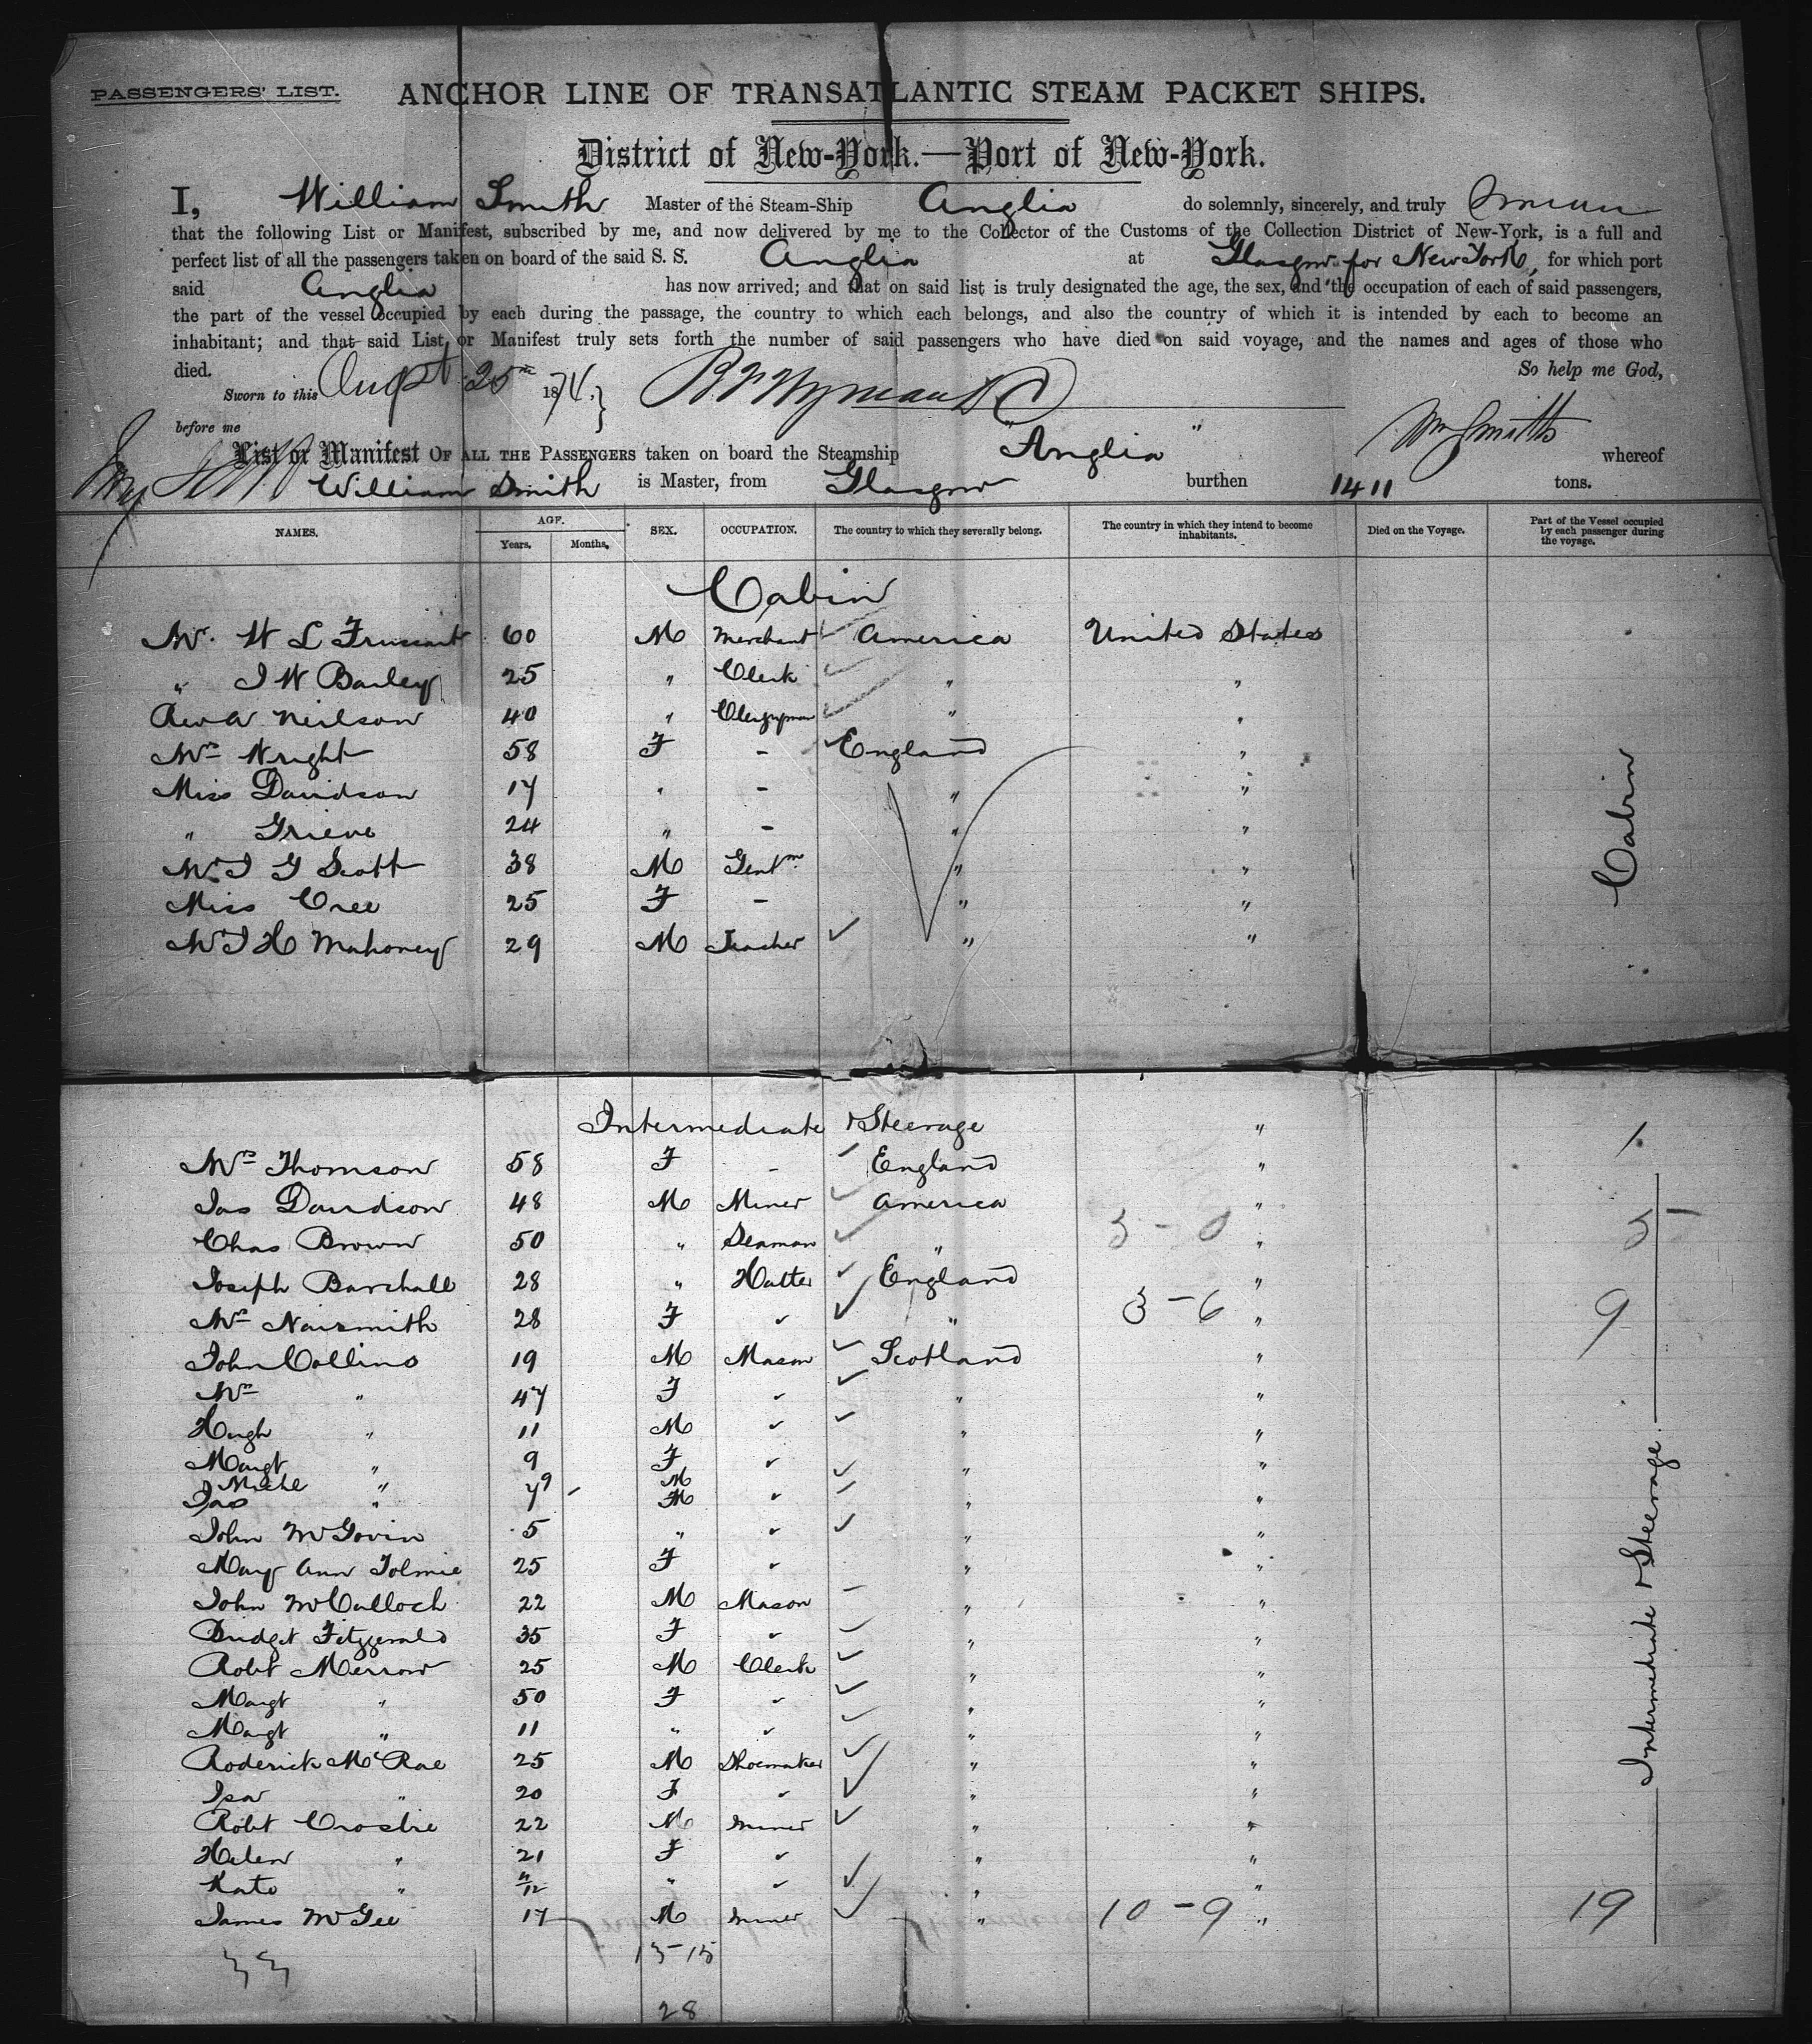 PASSENGERS' LIST. ANCHOR LINE OF TRANSATLANTIC STEAM PACKET SHIPS.
District of New-York.—Port of New-York.
I, William Smith Master of the Steam-Ship Anglia do solemnly, sincerely, and truly
that the following List or Manifest, subscribed by me, and now delivered by me to the Collector of the Customs of the Collection District of New-York, is a full and
perfect list of all the passengers taken on board of the said S. S. Anglia at Glasgow for New York, for which port
said Anglia has now arrived; and that on said list is truly designated the age, the sex, and the occupation of each of said passengers,
the part of the vessel occupied by each during the passage, the country to which each belongs, and also the country of which it is intended by each to become an
inhabitant; and that said List or Manifest truly sets forth the number of said passengers who have died on said voyage, and the names and ages of those who
died. So help me God,
Sworn to this Augst 25th 1874.
before me Wm Smith
List or Manifest OF ALL THE PASSENGERS taken on board the Steamship "Anglia" whereof
William Smith is Master, from Glasgow burthen 1411 tons.
NAMES. AGE. Years. Months. SEX. OCCUPATION. The country to which they severally belong. The country in which they intend to become inhabitants. Died on the Voyage. Part of the Vessel occupied by each passenger during the voyage.
Cabin
Mr. W L 60 M Merchant America United States
" J W Bailey 25 " Clerk " "
Rev A Neilson 40 " Clergyman " "
Mrs Wright 58 F - England "
Miss Davidson 17 " - " "
" Grieve 24 " - " "
Mr J G Scott 38 M Gentn " "
Miss Cree 25 F - " "
Mr J H Mahoney 29 M Teacher " "
Cabin
Intermediate & Steerage " 1
Mrs Thomson 58 F - England "
Jas Davidson 48 M Miner America "
Chas Brown 50 " Seaman " 3 - 0 " 3
Joseph Barchall 28 " Hatter England "
Mrs Naismith 28 F " " 3 - 6 " 9
John Collins 19 M Mason Scotland "
Mrs " 47 F " " "
Hugh " 11 M " " "
Margt " 9 F " " "
Michl " 9 M
Jas " 7 M " " "
John McGovin 5 " " " "
Mary Ann Tolmie 25 F " " "
John McCulloch 22 M Mason " "
Bridget Fitzgerald 35 F " " "
Robt Merrow 25 M Clerk " "
Margt " 50 F " " "
Margt " 11 " " " "
Roderick McRae 25 M Shoemaker " "
Isa " 20 F " " "
Robt Crosbie 22 M Miner " "
Helen " 21 F " " "
Kate " 11/12 " " " "
James McGee 17 M Miner " 10 - 9 " 19
Intermediate & Steerage
33 13-15
28